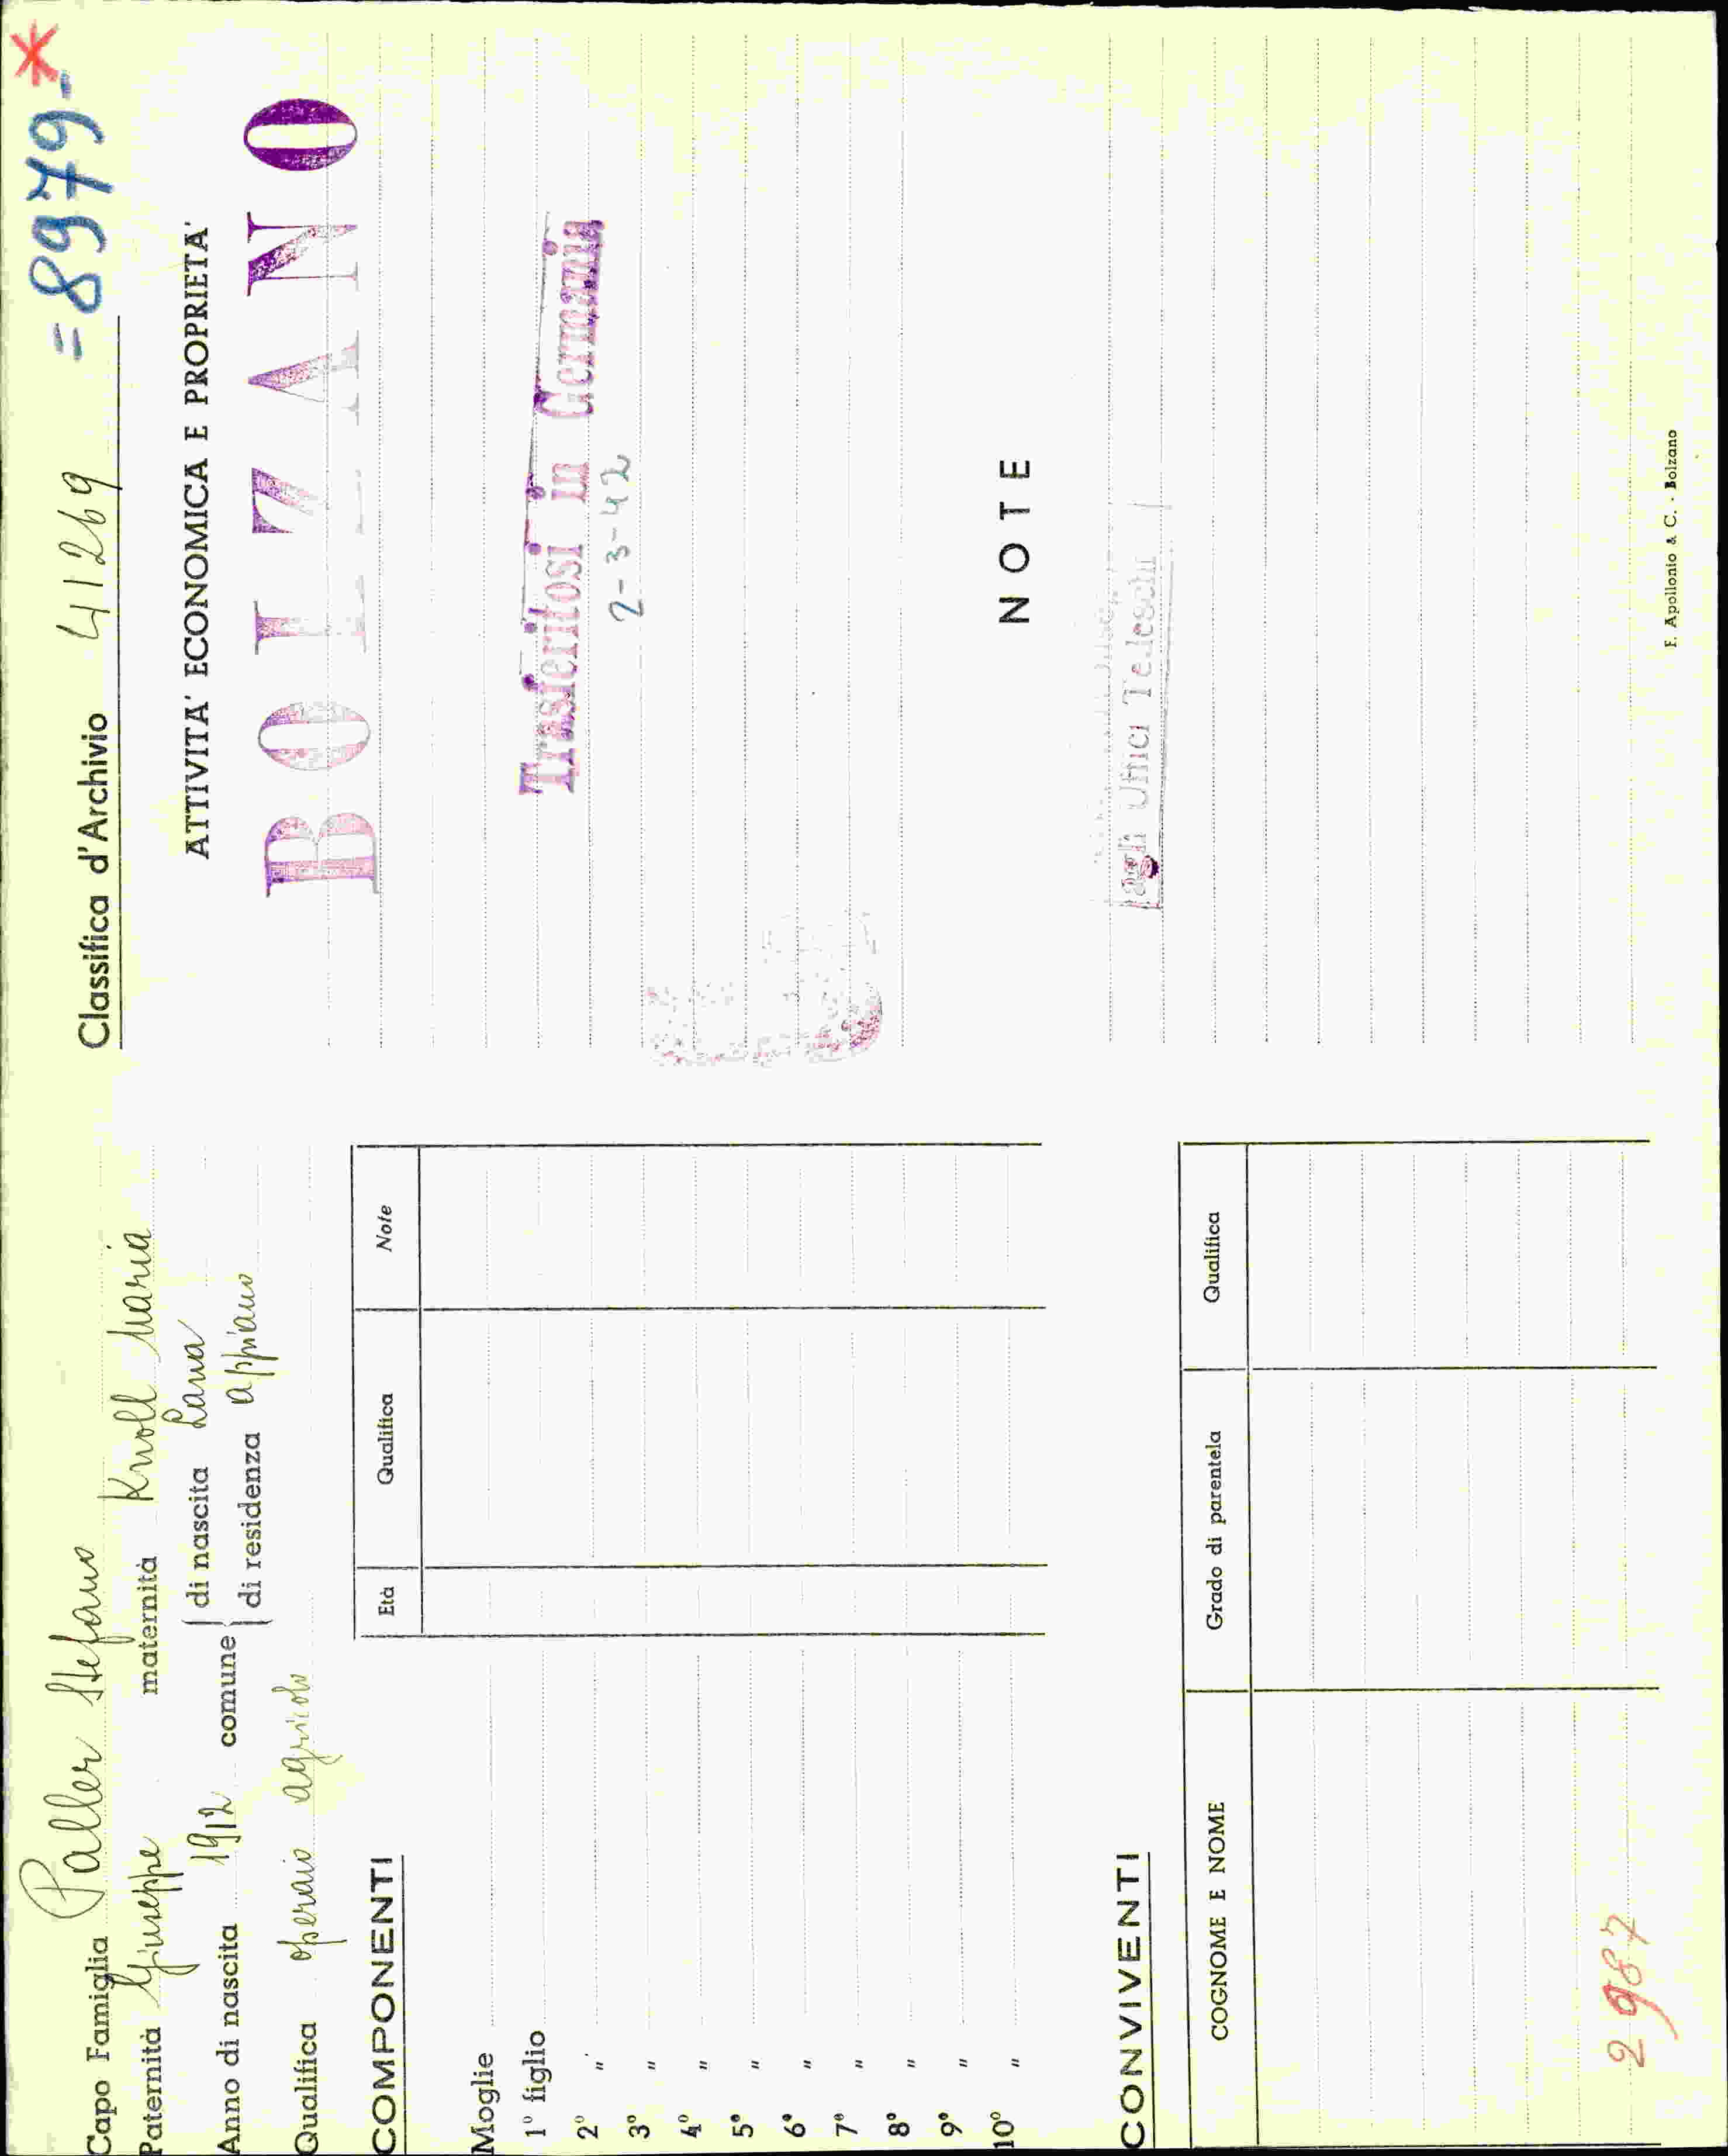 Capo Famiglia Paller Stefano
Paternità Giuseppe maternità Knoll Maria
Anno di nascita 1912 comune di nascita Lana
di residenza Appiano
Qualifica operaio agricolo
COMPONENTI
Età Qualifica Note
Moglie
1° figlio
2° "
3° "
4° "
5° "
6° "
7° "
8° "
9° "
10° "
CONVIVENTI
COGNOME E NOME Grado di parentela Qualifica
2987
Classifica d'Archivio 41269 = 8979-*
ATTIVITA' ECONOMICA E PROPRIETA'
BOLZANO
Trasferitosi in Germania
2-3-42
NOTE
agli Uffici Tedeschi
F. Apollonio & C. - Bolzano